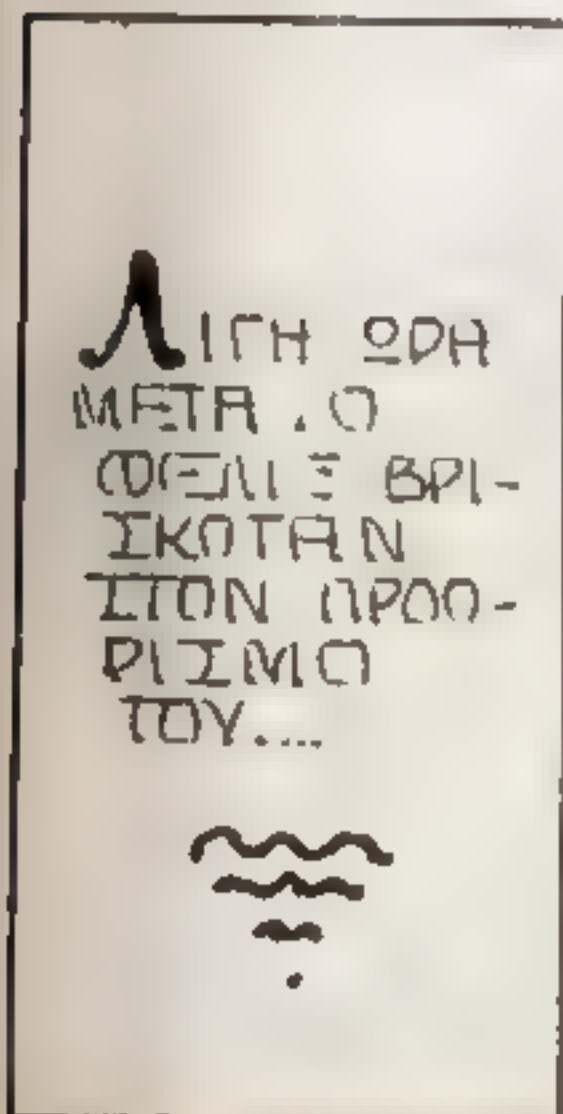 ΛΙΓΗ ΩΡΗ
ΜΕΤΑ . Ο
ΒΡΙ-
ΣΚΟΤΑΝ
ΣΤΟΝ ΠΡΟΟ-
ΡΙΣΜΟ
ΤΟΥ....